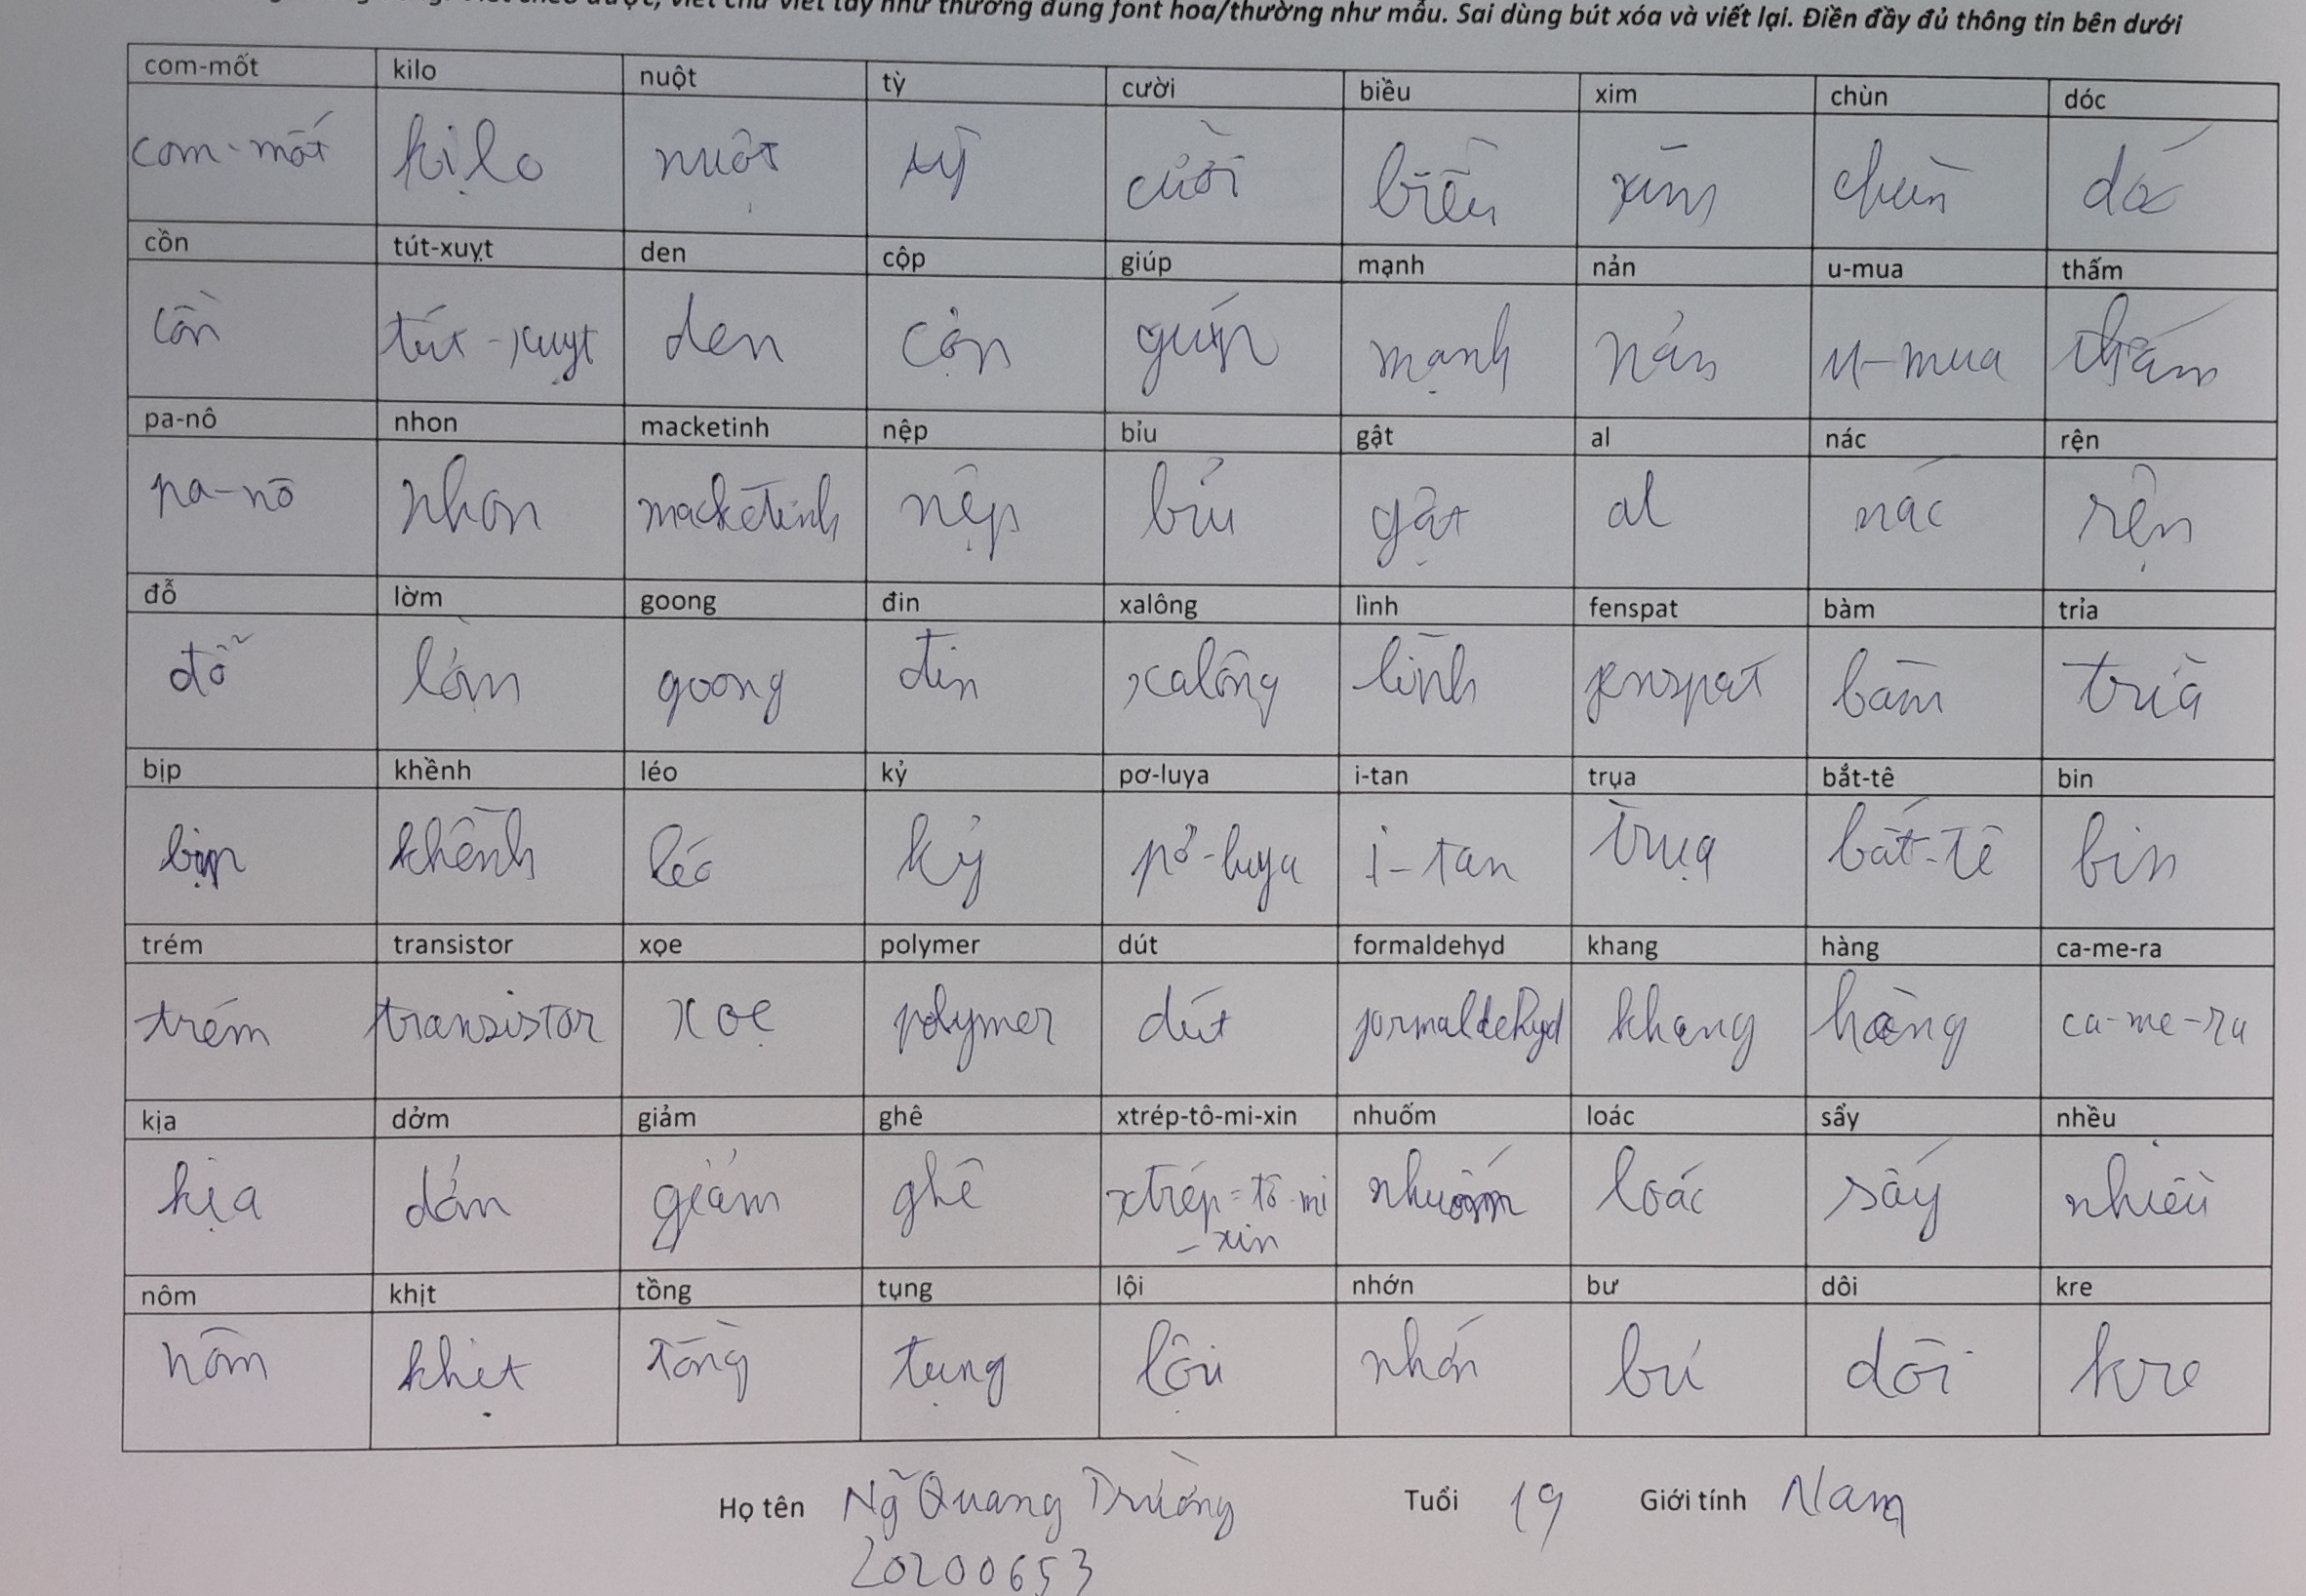 viết chữ viết tay như thường dùng font hoa/thường như mẫu. Sai dùng bút xóa và viết lại. Điền đầy đủ thông tin bên dưới
com-mốt kilo nuột tỳ cười biều xim chùn dóc
com-mốt kilo nuột tỳ cười biều xim chùn dóc
cồn tút-xuỵt den cộp giúp mạnh nản u-mua thấm
cồn tút-xuỵt den cộp giúp mạnh nản u-mua thấm
pa-nô nhon macketinh nệp bỉu gật al nác rện
pa-nô nhon macketinh nệp bỉu gật al nác rện
đỗ lờm goong đin xalông lình fenspat bàm trỉa
đỗ lờm goong đin xalông lình fenspat bàm trỉa
bịp khềnh léo kỷ pơ-luya i-tan trụa bắt-tê bin
bịp khềnh léo kỷ pơ-luya i-tan trụa bắt-tê bin
trém transistor xọe polymer dút formaldehyd khang hàng ca-me-ra
trém transistor xoẹ polymer dút formaldehyd khang hàng ca-me-ra
kịa dởm giảm ghê xtrép-tô-mi-xin nhuốm loác sẩy nhều
kịa dởm giảm ghê xtrép-tô-mi nhuốm loác sấy nhiều
-xin
nôm khịt tồng tụng lội nhớn bư dôi kre
nôm khịt tồng tụng lội nhớn bư dôi kre
Họ tên Ng̃ Quang Trường Tuổi 19 Giới tính Nam
20200653